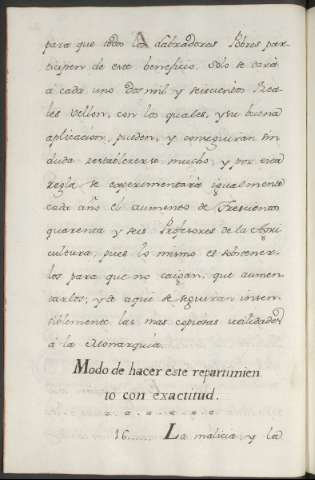 para que todos los Labradores Pobres par-
ticipen de este beneficio. Solo se dará
á cada uno dos mil y seiscientos Rea-
les Vellon, con los quales, y su buena
aplicacion, pueden, y conseguiran sin
duda restablecerse muchos, y por esta
regla se experimentára igualmente
cada año el aumento de Trescientos
quarenta y seis Profesores de la Agri-
cultura, pues lo mismo es sostener-
los para que no caigan, que aumen-
tarlos; y de aqui se seguiran insen-
siblemente las mas copiosas utilidades
á la Monarquia.
Modo de hacer este repartimien
to con exactitud.
16...... La malicia y la